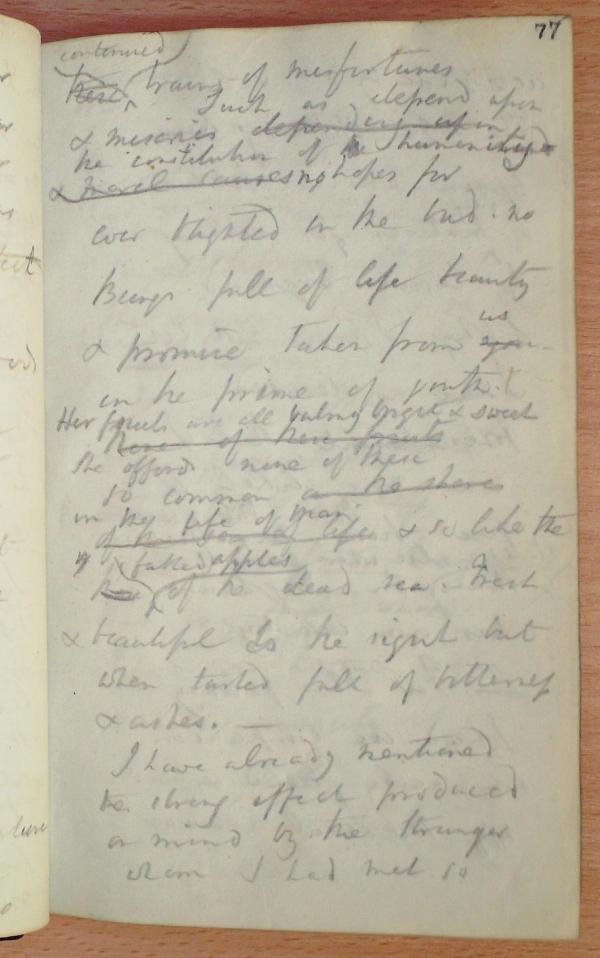 77
continued
trains of misfortunes
Such as depend upon
& miseries depending upon
the constitution of humanity
& moral causes no hopes for
ever blighted in the bud. no
Beings full of life beauty
& promise taken from us
in the prime of youth!
Her fruits are all balmy bright & sweet
She affords none of these
so common as the share
in the life of man
life & so like the
fabled apples
of the dead sea. fresh
& beautiful to the sight but
when tasted full of bitterness
& ashes. —
I have already mentioned
the strong effect produced
on mind by the stranger
whom I had met so